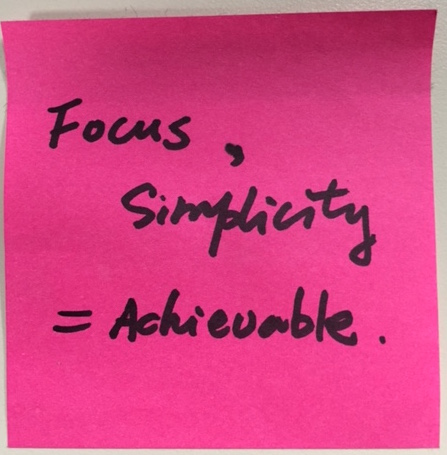 Focus,
Simplicity
= Achievable.